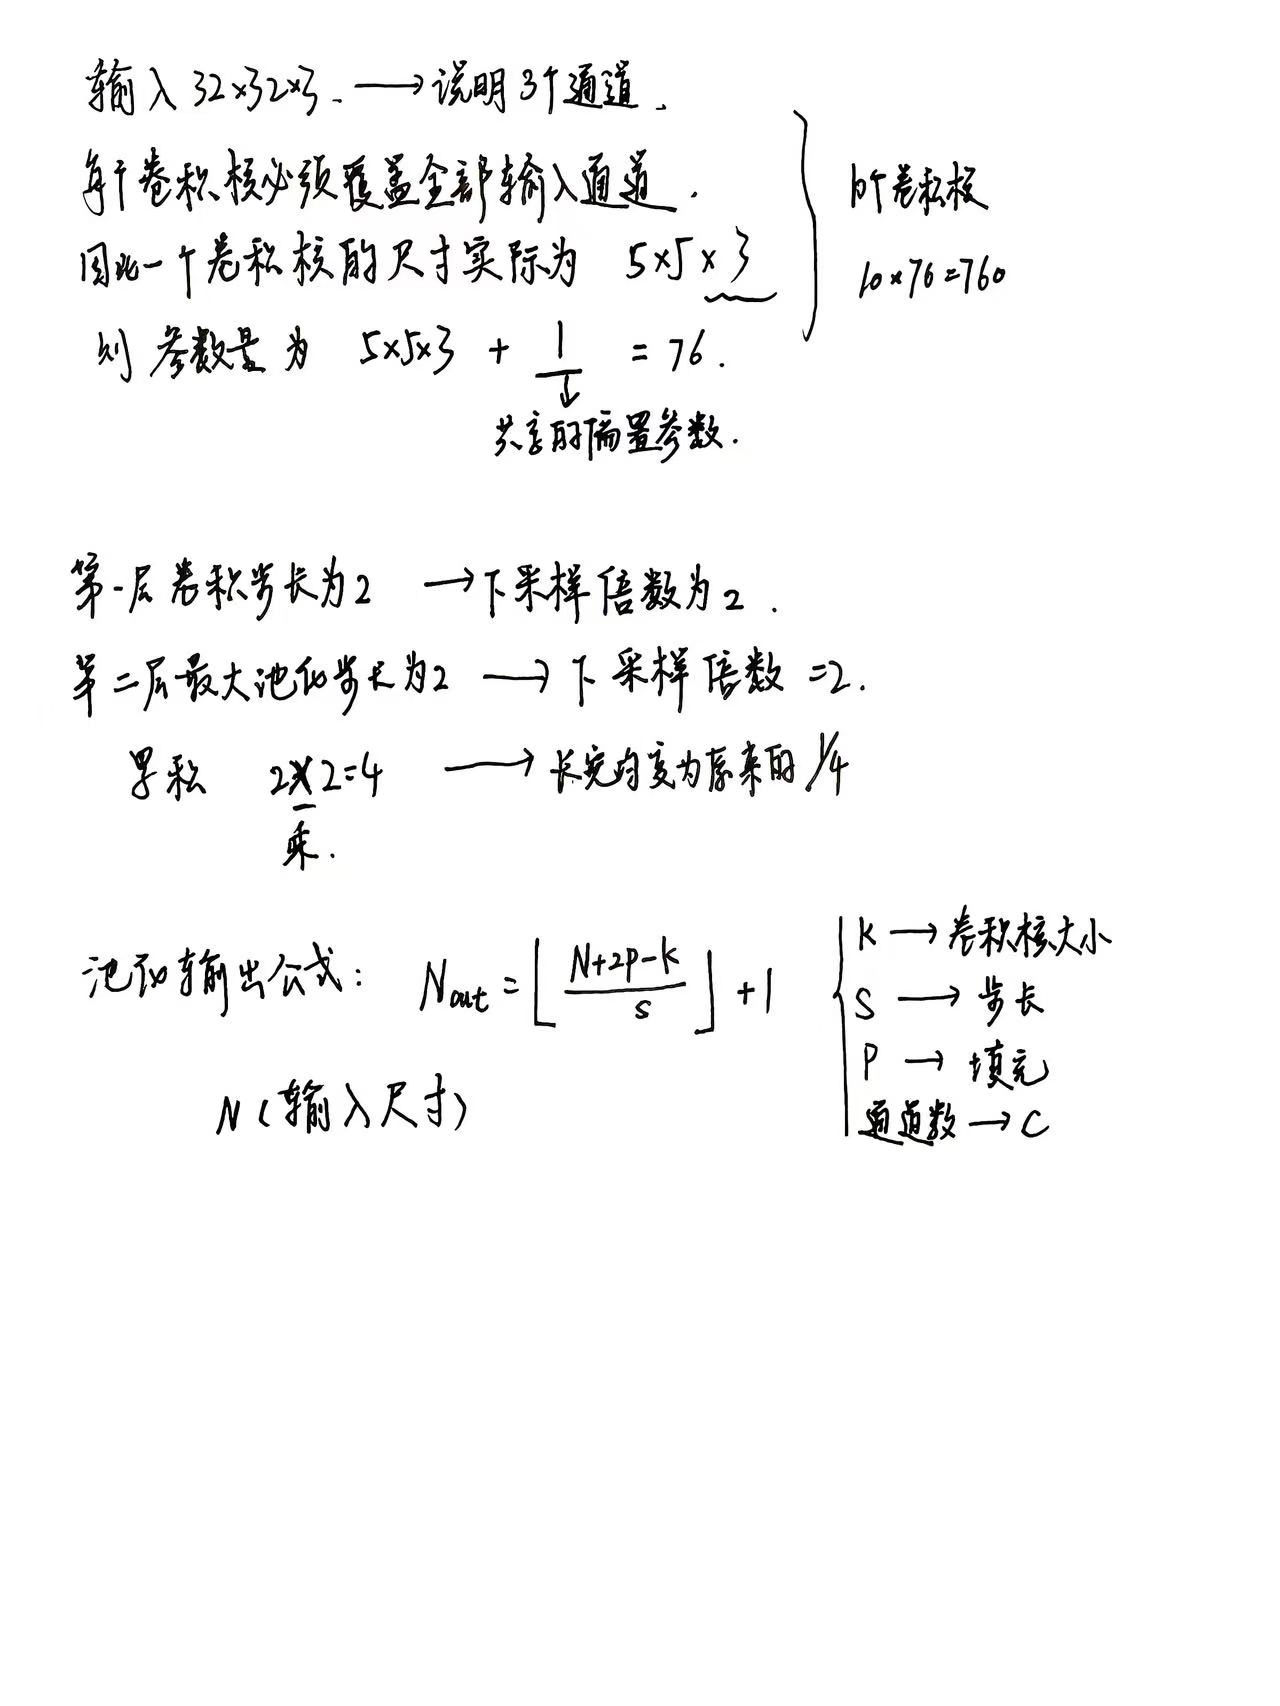 输入 32×32×3. → 说明 3个通道.
每个卷积核必须覆盖全部输入通道.
因此一个卷积核的尺寸实际为 5×5×3
则 参数量为 5×5×3 + 1 = 76.
↓
共享的偏置参数.
10个卷积核
10×76=760
第一层卷积步长为2 → 下采样倍数为2.
第二层最大池化步长为2 → 下采样倍数=2.
累积 2×2=4 → 长宽均变为原来的1/4
乘.
池化输出公式: Nout = ⌊(N+2P-K)/S⌋ +1
N(输入尺寸)
K → 卷积核大小
S → 步长
P → 填充
通道数 → C